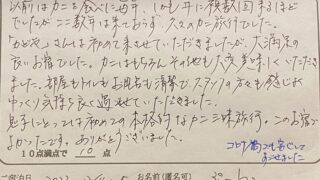 以前はカニを食べに毎年、(しかも年に複数回)来るほど
でしたがここ数年は来ておらず 久々のカニ旅行でした。
「かどや」さんは初めて来させていただきましたが、大満足の
良いお宿でした。カニはもちろん その他も大変美味しくいただき
ました。部屋もトイレもお風呂も清掃でスタッフの方々も感じよく
ゆっくり気持ち良く過ごせていただきました。
息子にとっては初めての本格的なカニ三昧旅行。このお宿で
よかったです。ありがとうございました。
コロナ禍でも安心して
すごせました
10点満点で 10 点
ご宿泊日
お名前(匿名可)